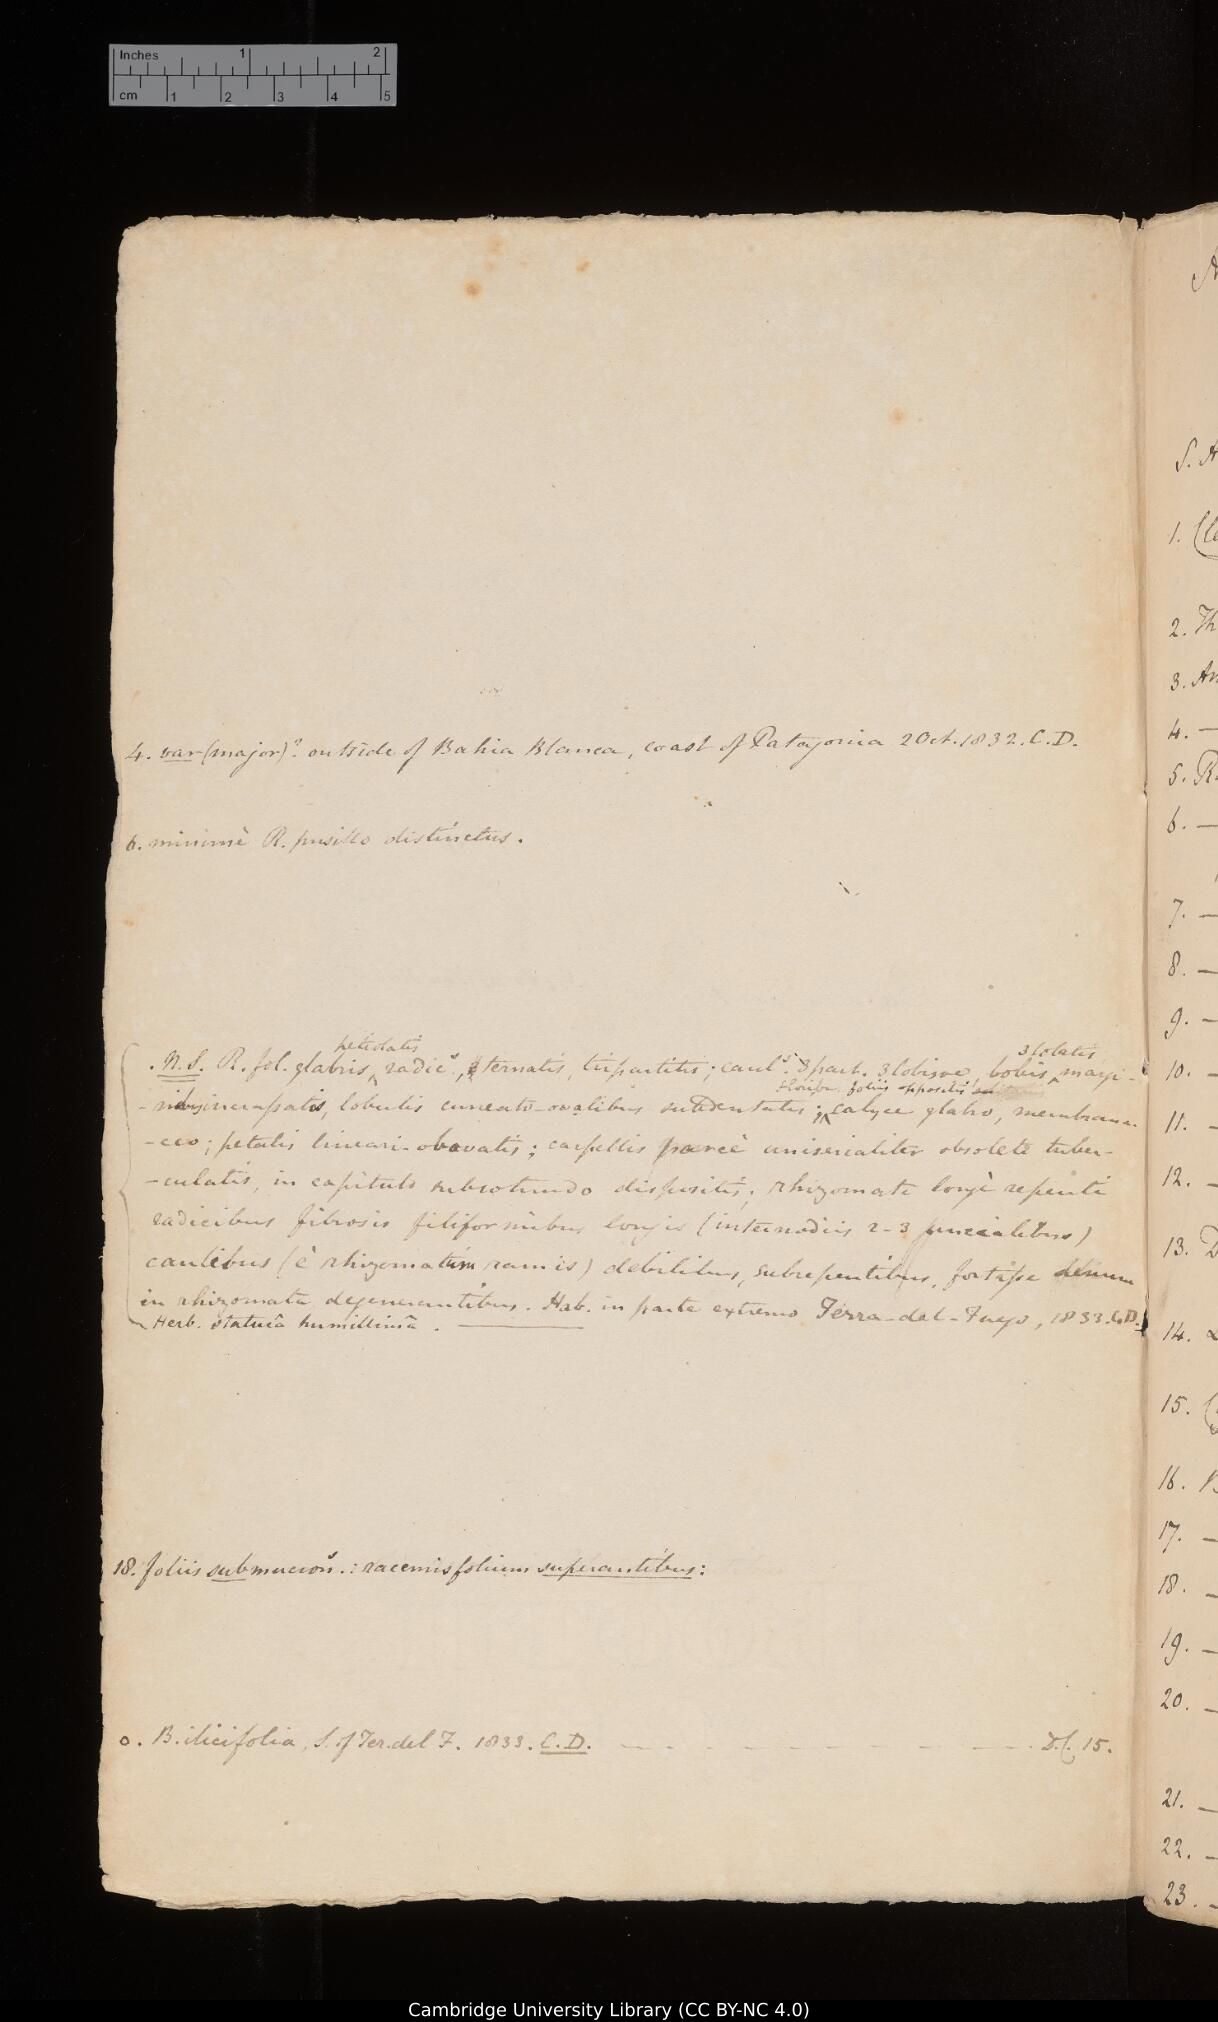 Inches 1 2
cm 1 2 3 4 5
4. var (major)? outside of Bahia Blanca, coast of Patagonia 2 Oct. 1832. C.D.
6. minimè R. pusillo distinctus.
petiolatis 3lobatis
. N.S. R. fol. glabris, radic.s, ternatis, tripartitis; caul.s 3part. 3lobisve, lobis margi-
floribs. foliis oppositis
- incrassatis, lobulis cuneato-ovalibus subdentatis; calyce glabro, membrana-
-ceo; petalis lineari-obovatis; carpellis parcè uniserialiter obsolete tuber-
-culatis, in capitulo subrotundo dispositis; rhizomate longè repenti
radicibus fibrosis filiformibus longis (internodiis 2-3 uncialibus)
caulibus (è rhizomatum ramis) debilibus, subrepentibus, fortasse demum
in rhizomata degenerantibus. Hab. in parte extremo Terra-del-Fuego, 1833. C.D.
Herb. staturâ humillimâ.
18. foliis submucron.s: racemis folium superantibus:
o. B. ilicifolia, S. of Ter. del F. 1833. C.D. D.C. 15.
S. A
1. Cle
2. Th
3. An
4. —
5. R
6. —
7. —
8. —
9. —
10. —
11. —
12. —
13. D
14.
15. C
16. B
17. —
18. —
19. —
20. —
21. —
22. —
23. —
Cambridge University Library (CC BY-NC 4.0)